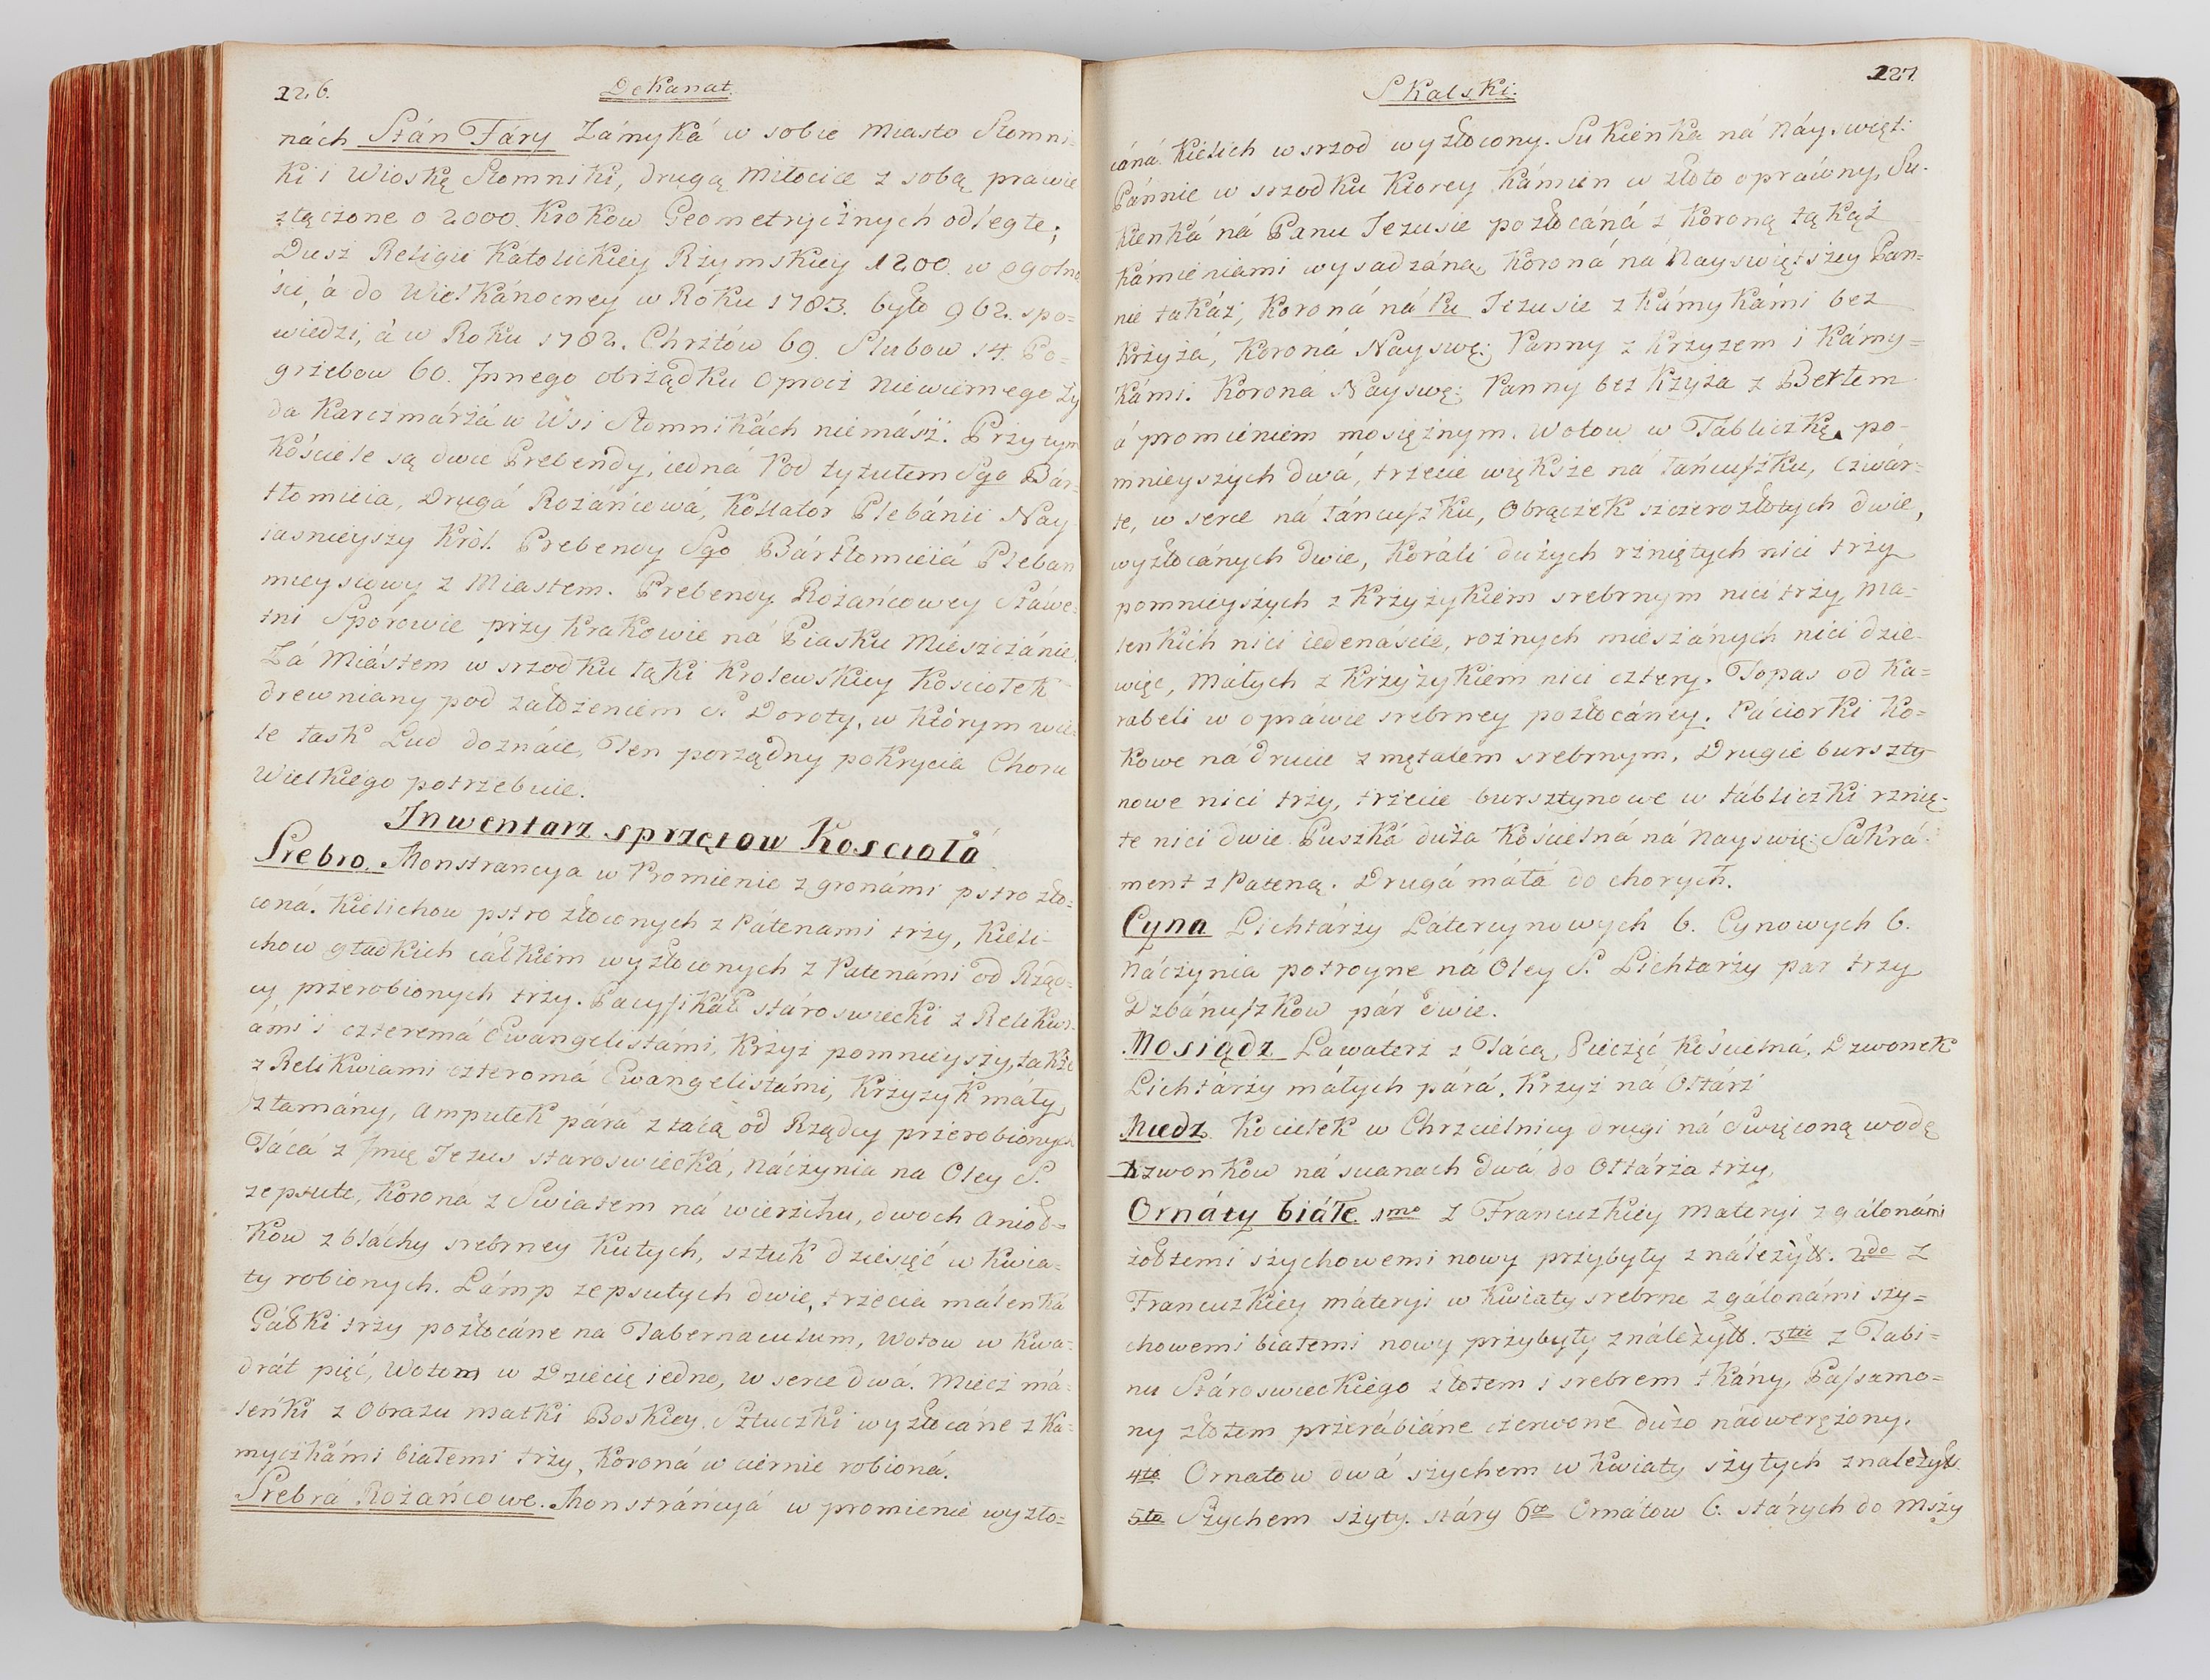 126.
Dekanat.
nách Stán Fáry Zámyká w sobie Miasto Słomni=
ki i Wioskę Słomniki, drugą Miłocice z sobą prawie
złączone o 2000. Krokow Geometrycżnych odległe;
Dusz Religii Kátolickiey Rzymskiey 1200. w ogolno
ści, á do Wielkánocney w Roku 1783. było 962. spo=
wiedzi, á w Roku 1782. Chrztów 69. Slubow 14. Po=
grzebow 60. Innego obrżądku oprocż niewiernego Ży
da Karcżmárżá w Wsi Słomnikách niemász. Przy tym
Kościele są dwie Prebendy, iedná Pod tytułem Sgo Bár=
tłomieia, Drugá Rożáńcowá, Kollator Plebánii Nay
iasnieyszy Król. Prebendy Sgo Bártłomieiá Pleban
mieyscowy z Miastem. Prebendy Rożańcowey Sławe=
tni Sporowie przy Krakowie ná Piasku Mieszcżánie.
Zá Miástem w srzodku łąki Krolewskiey Kościołek
drewniany pod założeniem S. Doroty, w którym wie=
le łask Lud doznáie, Ten porżądny pokrycia Choru
Wielkiego potrzebuie.
Inwentarz sprzętow Koscioła
Srebro. Monstrancya w Promienie z gronámi pstro zło=
coná. Kielichow pstro złoconych z Patenami trży, Kieli-
chow gładkich cáłkiem wyzłoconych z Patenámi od Rżąd=
cy przerobionych trży. Pacyfikáł stároswiecki z Relikwi=
ámi i czteremá Ewangelistámi, Krżyż pomnieyszy, także
z Relikwiami czteromá Ewangelistámi, Krżyżyk máły
złamány, Ampułek pára z tacą od Rządcy przerobionych
Tácá z Imię Jezus staroswiecká, náczynia na Oley S.
zepsute, Korona z Swiatem ná wierzchu, dwoch Anioł=
kow z bláchy srebrney kutych, sztuk dziesięć w kwia=
ty robionych. Lámp zepsutych dwie, trzecia máleńká
Gáłki trży pozłocáne na Tabernaculum, Wotow w Kwa=
drát pięć, Wotow w Dziecię iedno, w serce dwá. Miecz má=
leńki z Obrazu Matki Boskiey. Sztuczki wyzłocáne z Ka=
myczkámi białemi trży, Koroná w ciernie robioná.
Srebrá Rożańcowe. Monstráncyá w promienie wyzło=
Skalski.
127.
cáná. Kielich wsrzod wyzłocony. Sukienka ná Náyswięt:
Pánnie w srzodku ktorey kámień w złoto opráwny, Su-
kienká ná Panu Jezusie pozłocáná z koroną tąkąż
kámieniami wysadzáną, Koroná ná Nayswiętszey Pan=
nie takáż, Koroná ná Pu Jezusie z Kámykámi bez
krżyżá, Koroná Nayswę: Panny z krzyżem i Kámy=
kámi. Koroná Nayswę: Panny bez Krzyża z Berłem
á promieniem mosiężnym. Wotow w Tabliczkę po-
mnieyszych dwá, trżecie większe ná łańcuszku, czwár=
te, w serce ná łáncuszku, Obrączek szczerozłotych dwie,
wyzłocánych dwie, Koráli dużych rżniętych nici trży
pomnieyszych z krżyżykiem srebrnym nici trży, Ma-
leńkich nici iedenáscie, rożnych mieszánych nici dzie-
więc, Máłych z krżyżykiem nici cztery. Topas od Ka=
rabeli w opráwie srebrney pozłocáney. Páciorki Ko=
kowe ná drucie z mętalem srebrnym, Drugie burszty-
nowe nici trży, trżecie bursztynowe w tábliczki rznię-
te nici dwie. Puszká duża Kościelná ná Nayswię: Sakrá=
ment z Pateną. Drugá máłá do chorych.
Cyna Lichtárży Latercynowych 6. Cynowych 6.
Náczynia potroyne ná Oley S. Lichtarży par trzy
Dzbánuszkow pár dwie.
Mosiądz Lawaterż z Tácą, Pieczęć kościelná, Dzwonek
Lichtárży máłych párá, Krzyż ná Ołtárż
Miedz. Kociełek w Chrzcielnicy drugi ná Swięconą wodę
dzwonkow ná scianach dwá, do Ołtárża trży,
Ornáty białe. 1mo Z Francuzkiey materyi z gálonámi
żołtemi szychowemi nowy przybyły z náleżyt. 2do Z
Francuzkiey máteryi w kwiaty srebrne z gálonámi szy=
chowemi białemi nowy przybyły z náleżyt. 3tie z Tabi=
nu Stároswieckiego złotem i srebrem tkány, Passamo=
ny złotem przerábiáne czerwone dużo nadwerężony.
4to Ornatow dwá szychem w kwiaty szytych z należyt.
5to Szychem szyty stáry 6to Ornátow 6. stárych do Mszy